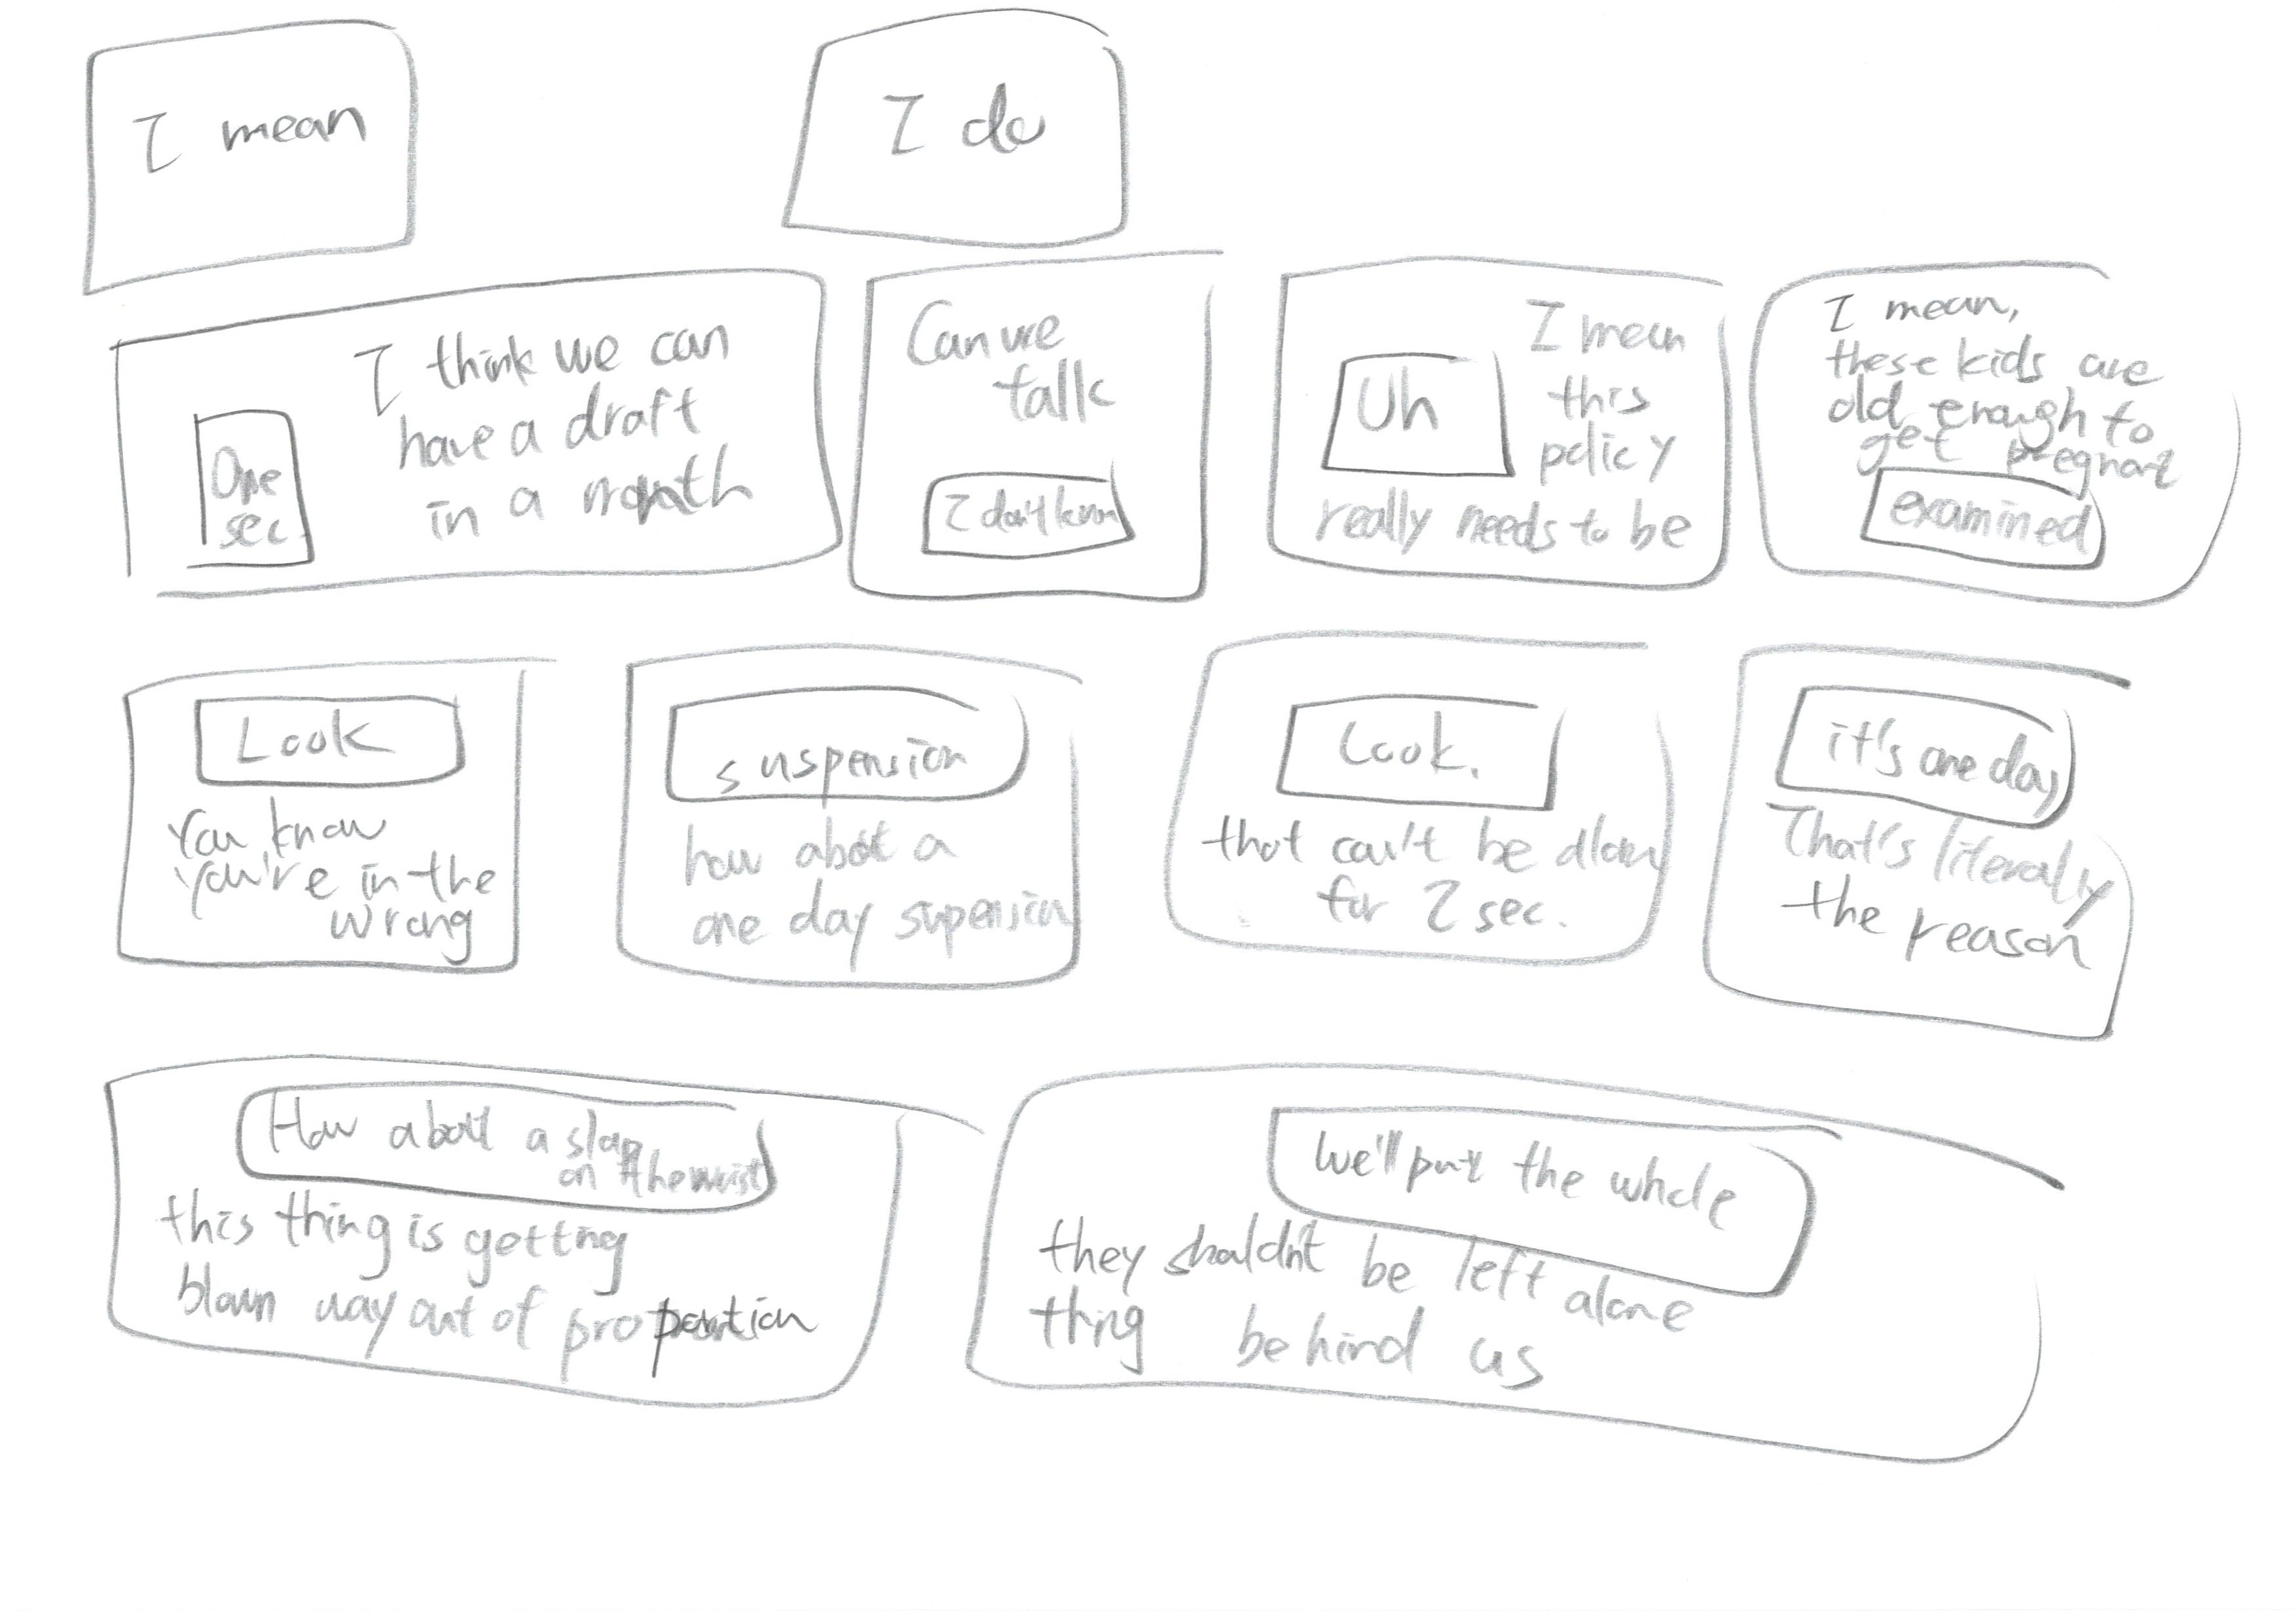 I mean
I do
One
sec.
I think we can
have a draft
in a month
Can we
talk
I don't know
Uh
I mean
this
policy
really needs to be
I mean,
these kids are
old enough to
get pregnant
examined
Look
You know
you're in the
wrong
suspension
how about a
one day supension
Look.
that can't be
for 2 sec.
it's one day
That's literaly
the reason
How about a slap
on the wrist
this thing is getting
blown way out of proportion
We'll put the whole
they shouldn't be left alone
thing behind us